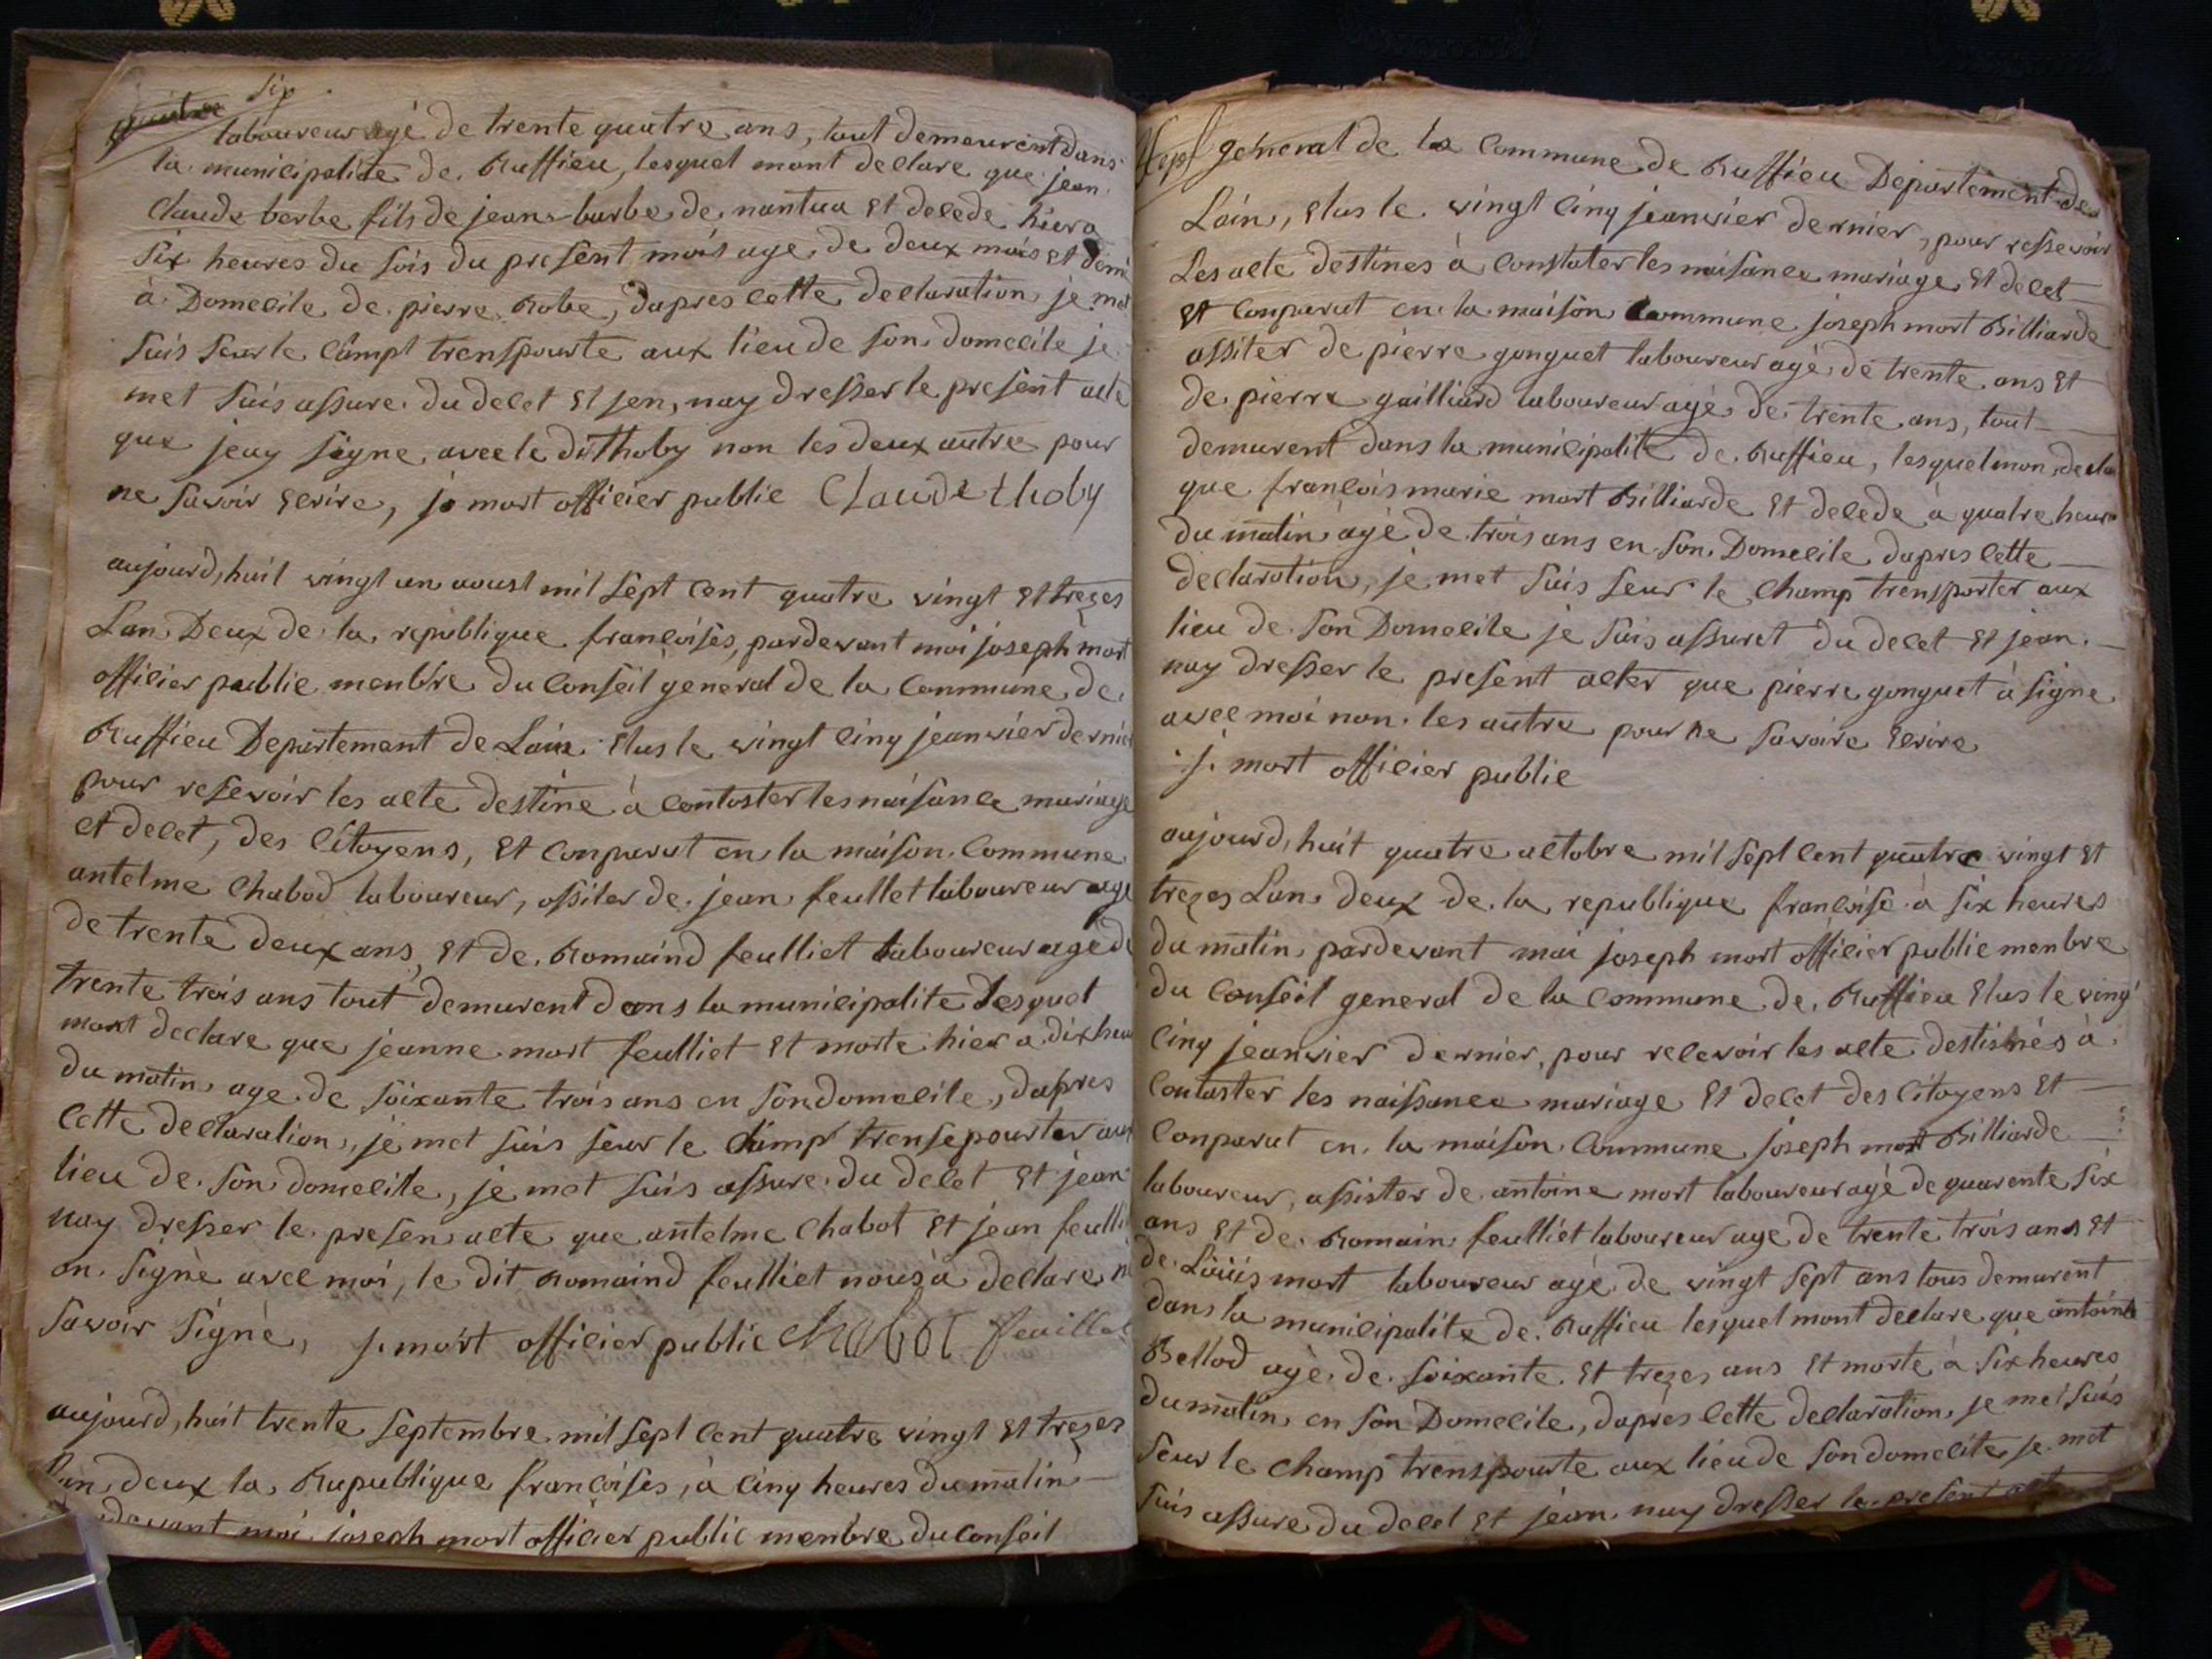 six
laboureur agé de trente quatre ans, tout demeurent dans
la municipalite de Ruffieu, lesquel mont declare que jean
Claude berbe fils de jean barbe de nantua et decede hier a
six heures du soir du present mois age de deux mois et demi
à Domecile de pierre Robe, dapres cette declaration je met
suis seur le campt trenspourte aux lieu de son domecile je
met suis assure du decet et jen, nay dresser le present acte
que jeay signe avec le dit thoby non les deux autre pour
ne savoir ecrire, j. mort officier public Claude thoby
aujourd,huit vingt un aoust mil sept cent quatre vingt et trezes
Lan Deux de la republique francoises, pardevant moi joseph mort
officier public menbre du Conseil general de la Commune de
Ruffieu Departement de Lain elus le vingt cinq jeanvier dernier
pour resevoir les acte destine à contaster les naisance mariage
et decet, des Citoyens, et conparut en la maison Commune
antelme Chabod laboureur, assiter de jean feullet laboureur age
de trente deux ans, et de Romaind feulliet laboureur age de
trente trois ans tout demurent dans la municipalite Lesquel
mont declare que jeanne mort feulliet et morte hier a dix heur
du matin age de soixante trois ans en son domecile, dapres
cette declaration, je met suis seur le camp trensepourter aux
lieu de son domecile, je met suis assure du decet et jean
nay dresser le presen acte que antelme Chabot et jean feulli
on signè avec moi, le dit Romaind feulliet nous à declare ne
savoir signè, j. mort officier public Chabot feuillet
aujourd,huit trente septembre mil sept cent quatre vingt et trezes
Lan deux la Rupublique francoises, à cinq heures du matin
devant moi joseph mort officier public menbre du Conseil
sept
general de la Commune de Ruffieu Departement de
Lain, elus le vingt cinq jeanvier dernier, pour ressevoir
Les acte destines à constater les naisance mariage et decet
et conparut en la maison Commune joseph mort Billiarde
assiter de pierre gonguet laboureur agè de trente ans et
de pierre gailliard laboureur agè de trente ans, tout
demurent dans la municipalite de Ruffieu, lesquel mon decla
que francois marie mort Billiarde et decede à quatre heur
du matin agè de trois ans en son Domecile dapres cette
declaration, je met suis seur le champ trensporter aux
lieu de son Domecile je suis assuret du decet et jean
nay dresser le present acter que pierre gonguet à signe
avec moi non les autre pour ne savoire ecrire
j. mort officier public
aujourd,huit quatre actobre mil sept cent quatre vingt et
trezes Lan deux de la republique francoise à six heures
du matin pardevant moi joseph mort officier public menbre
du Conseil general de la Commune de Ruffieu elus le vingt
cinq jeanvier dernier, pour recevoir les acte destinés à
contaster les naissance mariage et decet des Citoyens et
Conparut en la maison Commune joseph mort Billiarde
laboureur, assister de antoine mort laboureur agè de quarente six
ans et de Romain feulliet laboureur age de trente trois ans et
de Louis mort laboureur agè de vingt sept ans tous demurent
dans la municipalite de Ruffieu lesquel mont declare que antoine
Bellod agè de soixante et trezes ans et morte à six heures
du matin en son Domecile, dapres cette declaration je met suis
seur le champ trenspourte aux lieu de son domecite je met
suis assure du decet et jean nay dresser le present acte